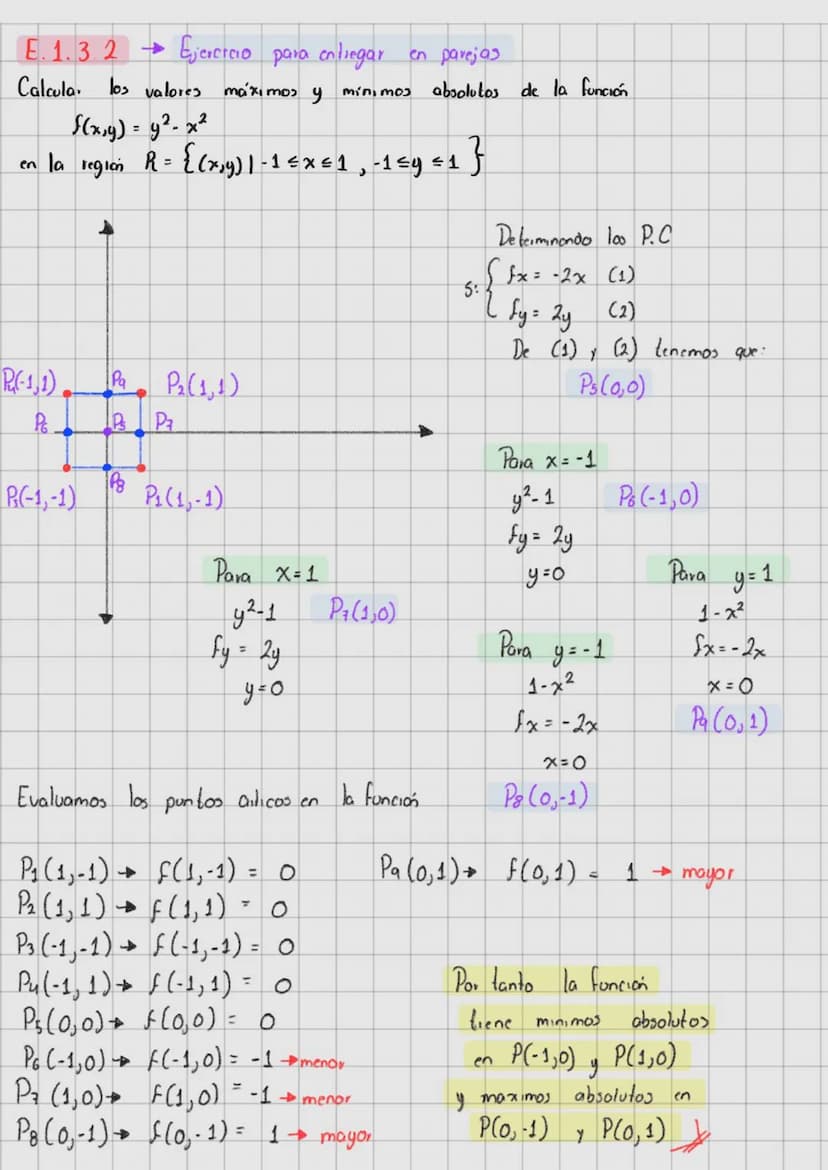 E.1.3.2 → Ejercicio para entregar en parejas
Calcular los valores máximos y mínimos absolutos de la función
f(x,y) = y² - x²
en la región R = {(x,y) | -1 ≤ x ≤ 1 , -1 ≤ y ≤ 1 }
Determinando los P.C
S: { fx = -2x (1)
fy = 2y (2)
De (1) y (2) tenemos que:
P5(0,0)
P4(-1,1) P9 P2(1,1)
P6 P5 P7
P3(-1,-1) P8 P1(1,-1)
Para x = -1
y²-1 P6(-1,0)
fy = 2y
y=0
Para x=1
y²-1 P7(1,0)
fy = 2y
y=0
Para y=1
1-x²
fx=-2x
x=0
P9(0,1)
Para y=-1
1-x²
fx = -2x
x=0
P8(0,-1)
Evaluamos los puntos críticos en la función
P1(1,-1) → f(1,-1) = 0
P2(1,1) → f(1,1) = 0
P3(-1,-1) → f(-1,-1) = 0
P4(-1,1) → f(-1,1) = 0
P5(0,0) → f(0,0) = 0
P6(-1,0) → f(-1,0) = -1 → menor
P7(1,0) → f(1,0) = -1 → menor
P8(0,-1) → f(0,-1) = 1 → mayor
P9(0,1) → f(0,1) = 1 → mayor
Por tanto la función
tiene minimos absolutos
en P(-1,0) y P(1,0)
y maximos absolutos en
P(0,-1) y P(0,1)